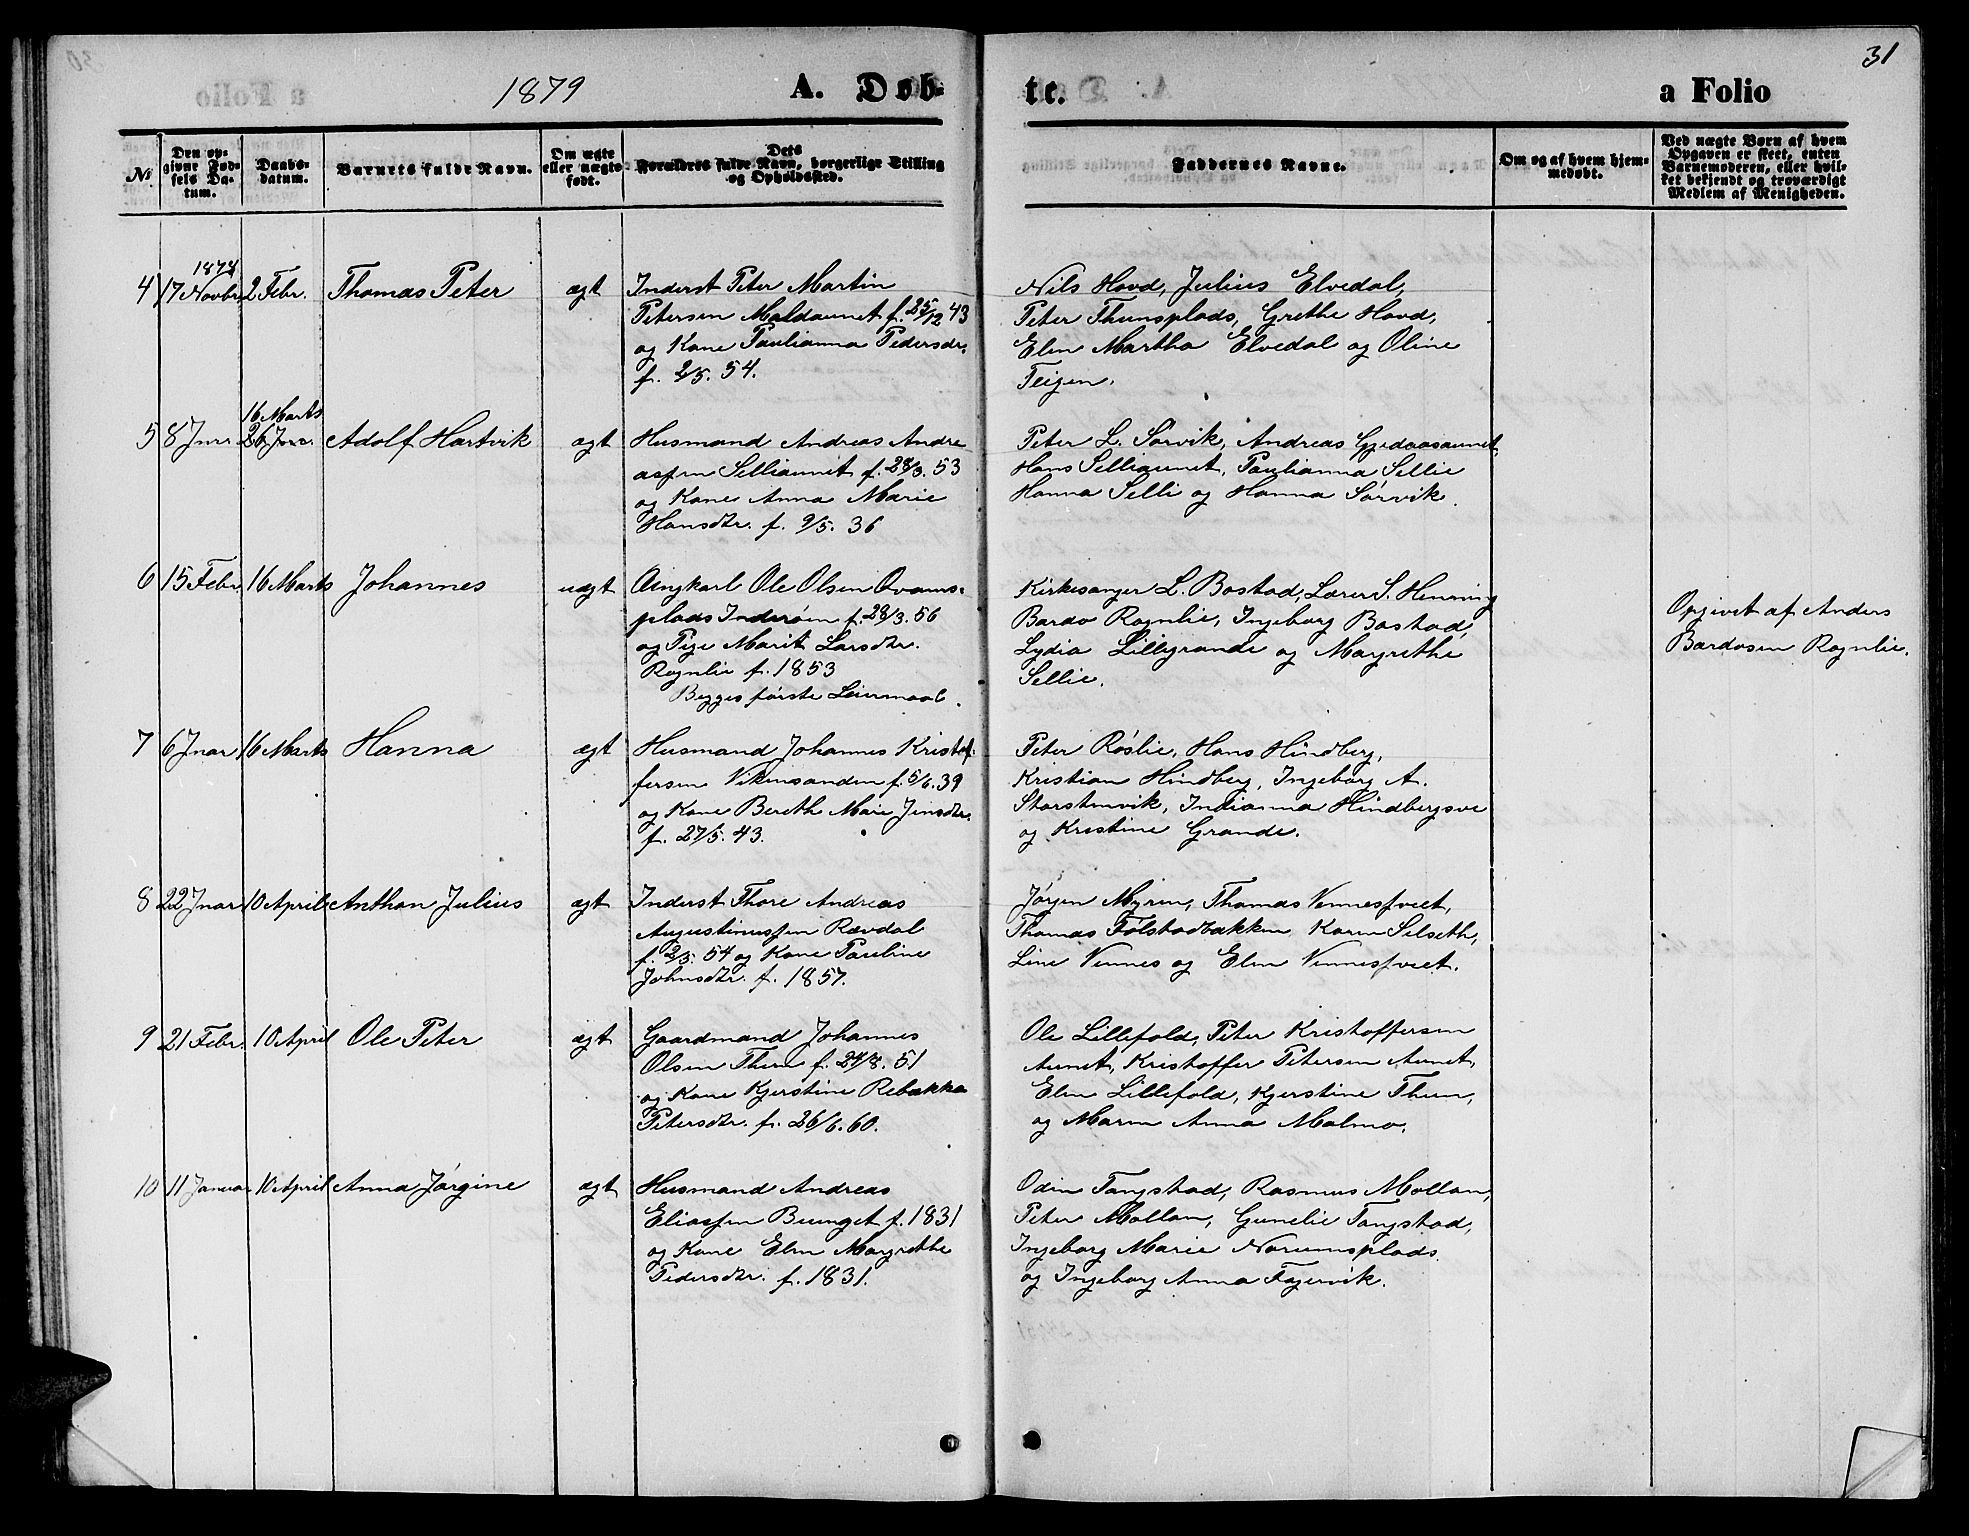 31
1879 A. Døb- te. a Folio
No.
Den op-
givne Fød-
sels Da-
tum.
Daabs-
datum.
Barnets fulde Navn.
Om ægte
eller uægte
født.
Dets
Forældres fulde Navn, borgerlige Stilling
og Opholdssted.
Faddernes Navne.
Om og af hvem hjem-
medøbt.
Ved uægte Børn af hvem
Opgaven er skeet, enten
Barnemoderen, eller hvil-
ket bekjendt og troværdigt
Medlem af Menigheden.
1878
4 17 Novbr. 2 Febr. Thomas Peter ægt
Inderst Peter Martin
Petersen Maldaunet f. 25/12 43
og Kone Paulianna Pedersdtr.
f. 2/5. 54.
Nils Hovd, Julius Elvedal,
Peter Thunsplads, Grethe Hovd,
Elen Martha Elvedal og Oline
Teigen.
16 Marts
5 8 Jnr. 26 Jnr. Adolf Hartvik ægt
Husmand Andreas Andre
assen Selliaunet f. 28/3. 53
og Kone Anna Marie
Hansdtr. f. 9/5. 36
Peter L. Sørvik, Andreas Gjedaasaunet,
Hans Selliaunet, Paulianna Sellie
Hanna Selli og Hanna Sørvik.
6 15 Febr. 16 Marts Johannes uægt
Ungkarl Ole Olsen Qvams-
plads Inderøen f. 28/3. 56
og Pige Marit Larsdtr.
Rognlie f. 1853
Begges første Leiermaal.
Kirkesanger L. Bostad, Lærer S. Henning
Bardo Rognlie, Ingeborg Bostad,
Lydia Lillegrande og Margrethe
Sellie.
Opgivet af Anders
Bardosen Rognlie.
7 6 Jnar 16 Marts Hanna ægt
Husmand Johannes Kristof-
fersen Vikensanden f. 5/6. 39
og Kone Bereth Marie Jensdtr.
f. 27/5. 43.
Peter Røslie, Hans Hindberg,
Kristian Hindberg, Ingeborg A.
Storstenvik, Indianna Hindbergsve
og Kristine Grande.
8 22 Jnar 10 April Anthon Julius ægt
Inderst Thore Andreas
Augustinussen Rævdal
f. 2/3. 54 og Kone Pauline
Johnsdtr. f. 1857.
Jørgen Myren, Thomas Vennessveet,
Thomas Følstadbakken Karen Selseth,
Line Vennes og Elen Vennessveet.
9 21 Febr. 10 April Ole Peter ægt
Gaardmand Johannes
Olsen Thun f. 24/8. 51
og Kone Kjerstine Rebækka
Petersdtr. f. 26/6. 60.
Ole Lillefold, Peter Kristoffersen
Aunet, Kristoffer Petersen Aunet,
Elen Lillefold, Kjerstine Thun,
og Maren Anna Malmo.
10 11 Januar 10 April Anna Jørgine ægt
Husmand Andreas
Eliassen Buunget f. 1831
og Kone Elen Margrethe
Pedersdtr. f. 1831.
Odin Tangstad, Rasmus Mollan,
Peter Mollan, Gunelie Tangstad,
Ingeborg Marie Norumsplads
og Ingeborg Anna Fagervik.